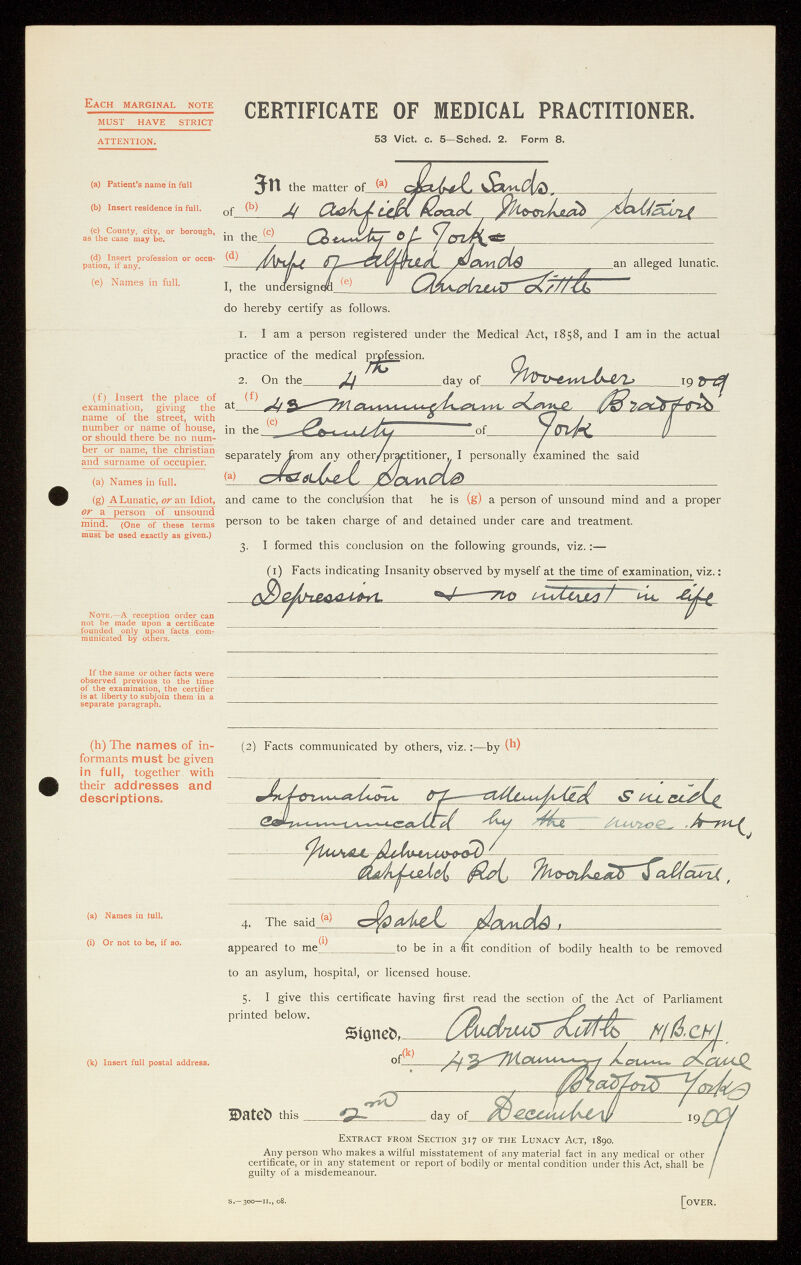 EACH MARGINAL NOTE
MUST HAVE STRICT
ATTENTION.
CERTIFICATE OF MEDICAL PRACTITIONER.
53 Vict. c. 5—Sched. 2. Form 8.
(a) Patient's name in full
In the matter of (a) Isabel Sands.
(b) Insert residence in full.
of (b) 4 Ashfield Road, Moorhead Saltaire
(c) County, city, or borough, as the case may be.
in the (c) County of York
(d) Insert profession or occupation, if any.
(d) Wife of Alfred Sands an alleged lunatic.
(e) Names in full.
I, the undersigned (e) Andrew Little
do hereby certify as follows.
1. I am a person registered under the Medical Act, 1858, and I am in the actual
practice of the medical profession.
2. On the 4th day of November 1909
(f) Insert the place of
examination, giving the
name of the street, with
number or name of house,
or should there be no num-
ber or name, the christian
and surname of occupier.
at (f) 43 Manningham Lane Bradford
in the (c) County of York
separately from any other practitioner, I personally examined the said
(a) Names in full.
(a) Isabel Sands
(g) A Lunatic, or an Idiot,
or a person of unsound
mind. (One of these terms
must be used exactly as given.)
and came to the conclusion that he is (g) a person of unsound mind and a proper
person to be taken charge of and detained under care and treatment.
3. I formed this conclusion on the following grounds, viz.:—
(1) Facts indicating Insanity observed by myself at the time of examination, viz.:
Depression & no interest in life
NOTE.—A reception order can
not be made upon a certificate
founded only upon facts com-
municated by others.
If the same or other facts were
observed previous to the time
of the examination, the certifier
is at liberty to subjoin them in a
separate paragraph.
(h) The names of in-
formants must be given
in full, together with
their addresses and
descriptions.
(2) Facts communicated by others, viz.:—by (h)
Information of attempted suicide
communicated by the nurse to me,
Nurse Silverwood
Ashfield Rd Moorhead Saltaire.
(a) Names in full.
4. The said (a) Isabel Sands,
(i) Or not to be, if so.
appeared to me (i) to be in a fit condition of bodily health to be removed
to an asylum, hospital, or licensed house.
5. I give this certificate having first read the section of the Act of Parliament
printed below.
Signed, Andrew Little M.B.CM.
(k) Insert full postal address.
of (k) 43 Manningham Lane
Bradford Yorks
Dated this 2nd day of December 1909
EXTRACT FROM SECTION 317 OF THE LUNACY ACT, 1890.
Any person who makes a wilful misstatement of any material fact in any medical or other
certificate, or in any statement or report of bodily or mental condition under this Act, shall be
guilty of a misdemeanour.
S.—300—11., 08.
[OVER.